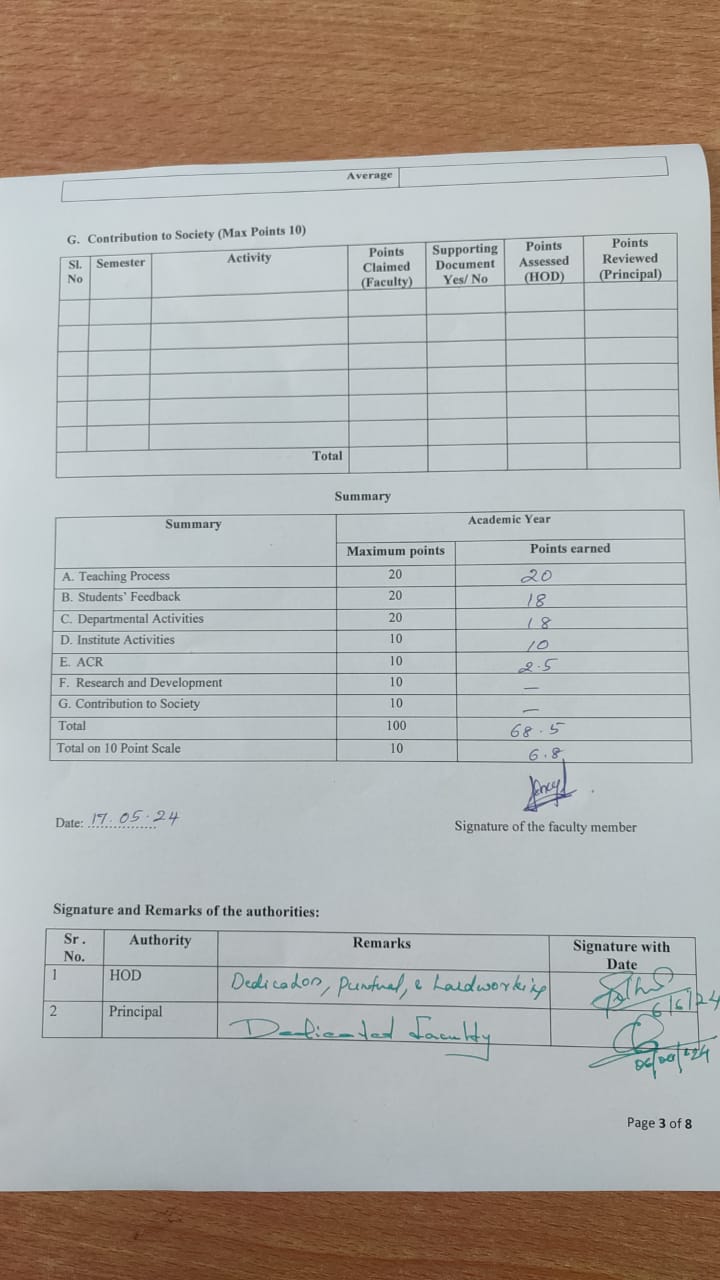 Average
G. Contribution to Society (Max Points 10)
Sl. No Semester Activity Points Claimed (Faculty) Supporting Document Yes/ No Points Assessed (HOD) Points Reviewed (Principal)
Total
Summary
Summary Academic Year
Maximum points Points earned
A. Teaching Process 20 20
B. Students' Feedback 20 18
C. Departmental Activities 20 18
D. Institute Activities 10 10
E. ACR 10 2.5
F. Research and Development 10 —
G. Contribution to Society 10 —
Total 100 68.5
Total on 10 Point Scale 10 6.8
Date: 17.05.24
Signature of the faculty member
Signature and Remarks of the authorities:
Sr. No. Authority Remarks Signature with Date
1 HOD Dedication, Puntual, & hardworking 6/6/24
2 Principal Dedicated faculty 06/06/24
Page 3 of 8